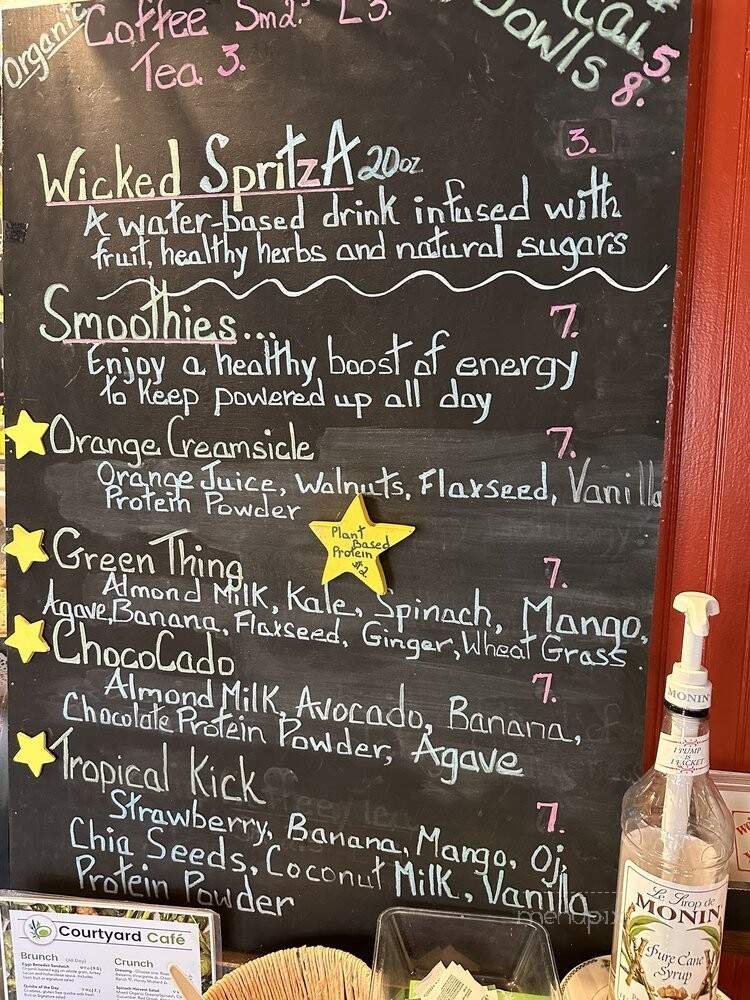 Organic
Coffee Smd. 2. L 3.
Tea 3.
Bowls
5.
8.
Wicked SpritzA 20oz 3.
A water-based drink infused with
fruit, healthy herbs and natural sugars
Smoothies... 7.
Enjoy a healthy boost of energy
to Keep powered up all day
Orange Creamsicle 7.
Orange Juice, Walnuts, Flaxseed, Vanilla
Protein Powder
Plant
Based
Protein
$2
Green Thing 7.
Almond Milk, Kale, Spinach, Mango,
Agave, Banana, Flaxseed, Ginger, Wheat Grass
ChocoCado 7.
Almond Milk, Avocado, Banana,
Chocolate Protein Powder, Agave
Tropical Kick 7.
Strawberry, Banana, Mango, Oj,
Chia Seeds, Coconut Milk, Vanilla
Protein Powder
MONIN
1 PUMP
IS
1 PACKET
Le Sirop de
MONIN
Pure Cane
Syrup
Courtyard Café
Brunch (All Day)
Crunch
menupix